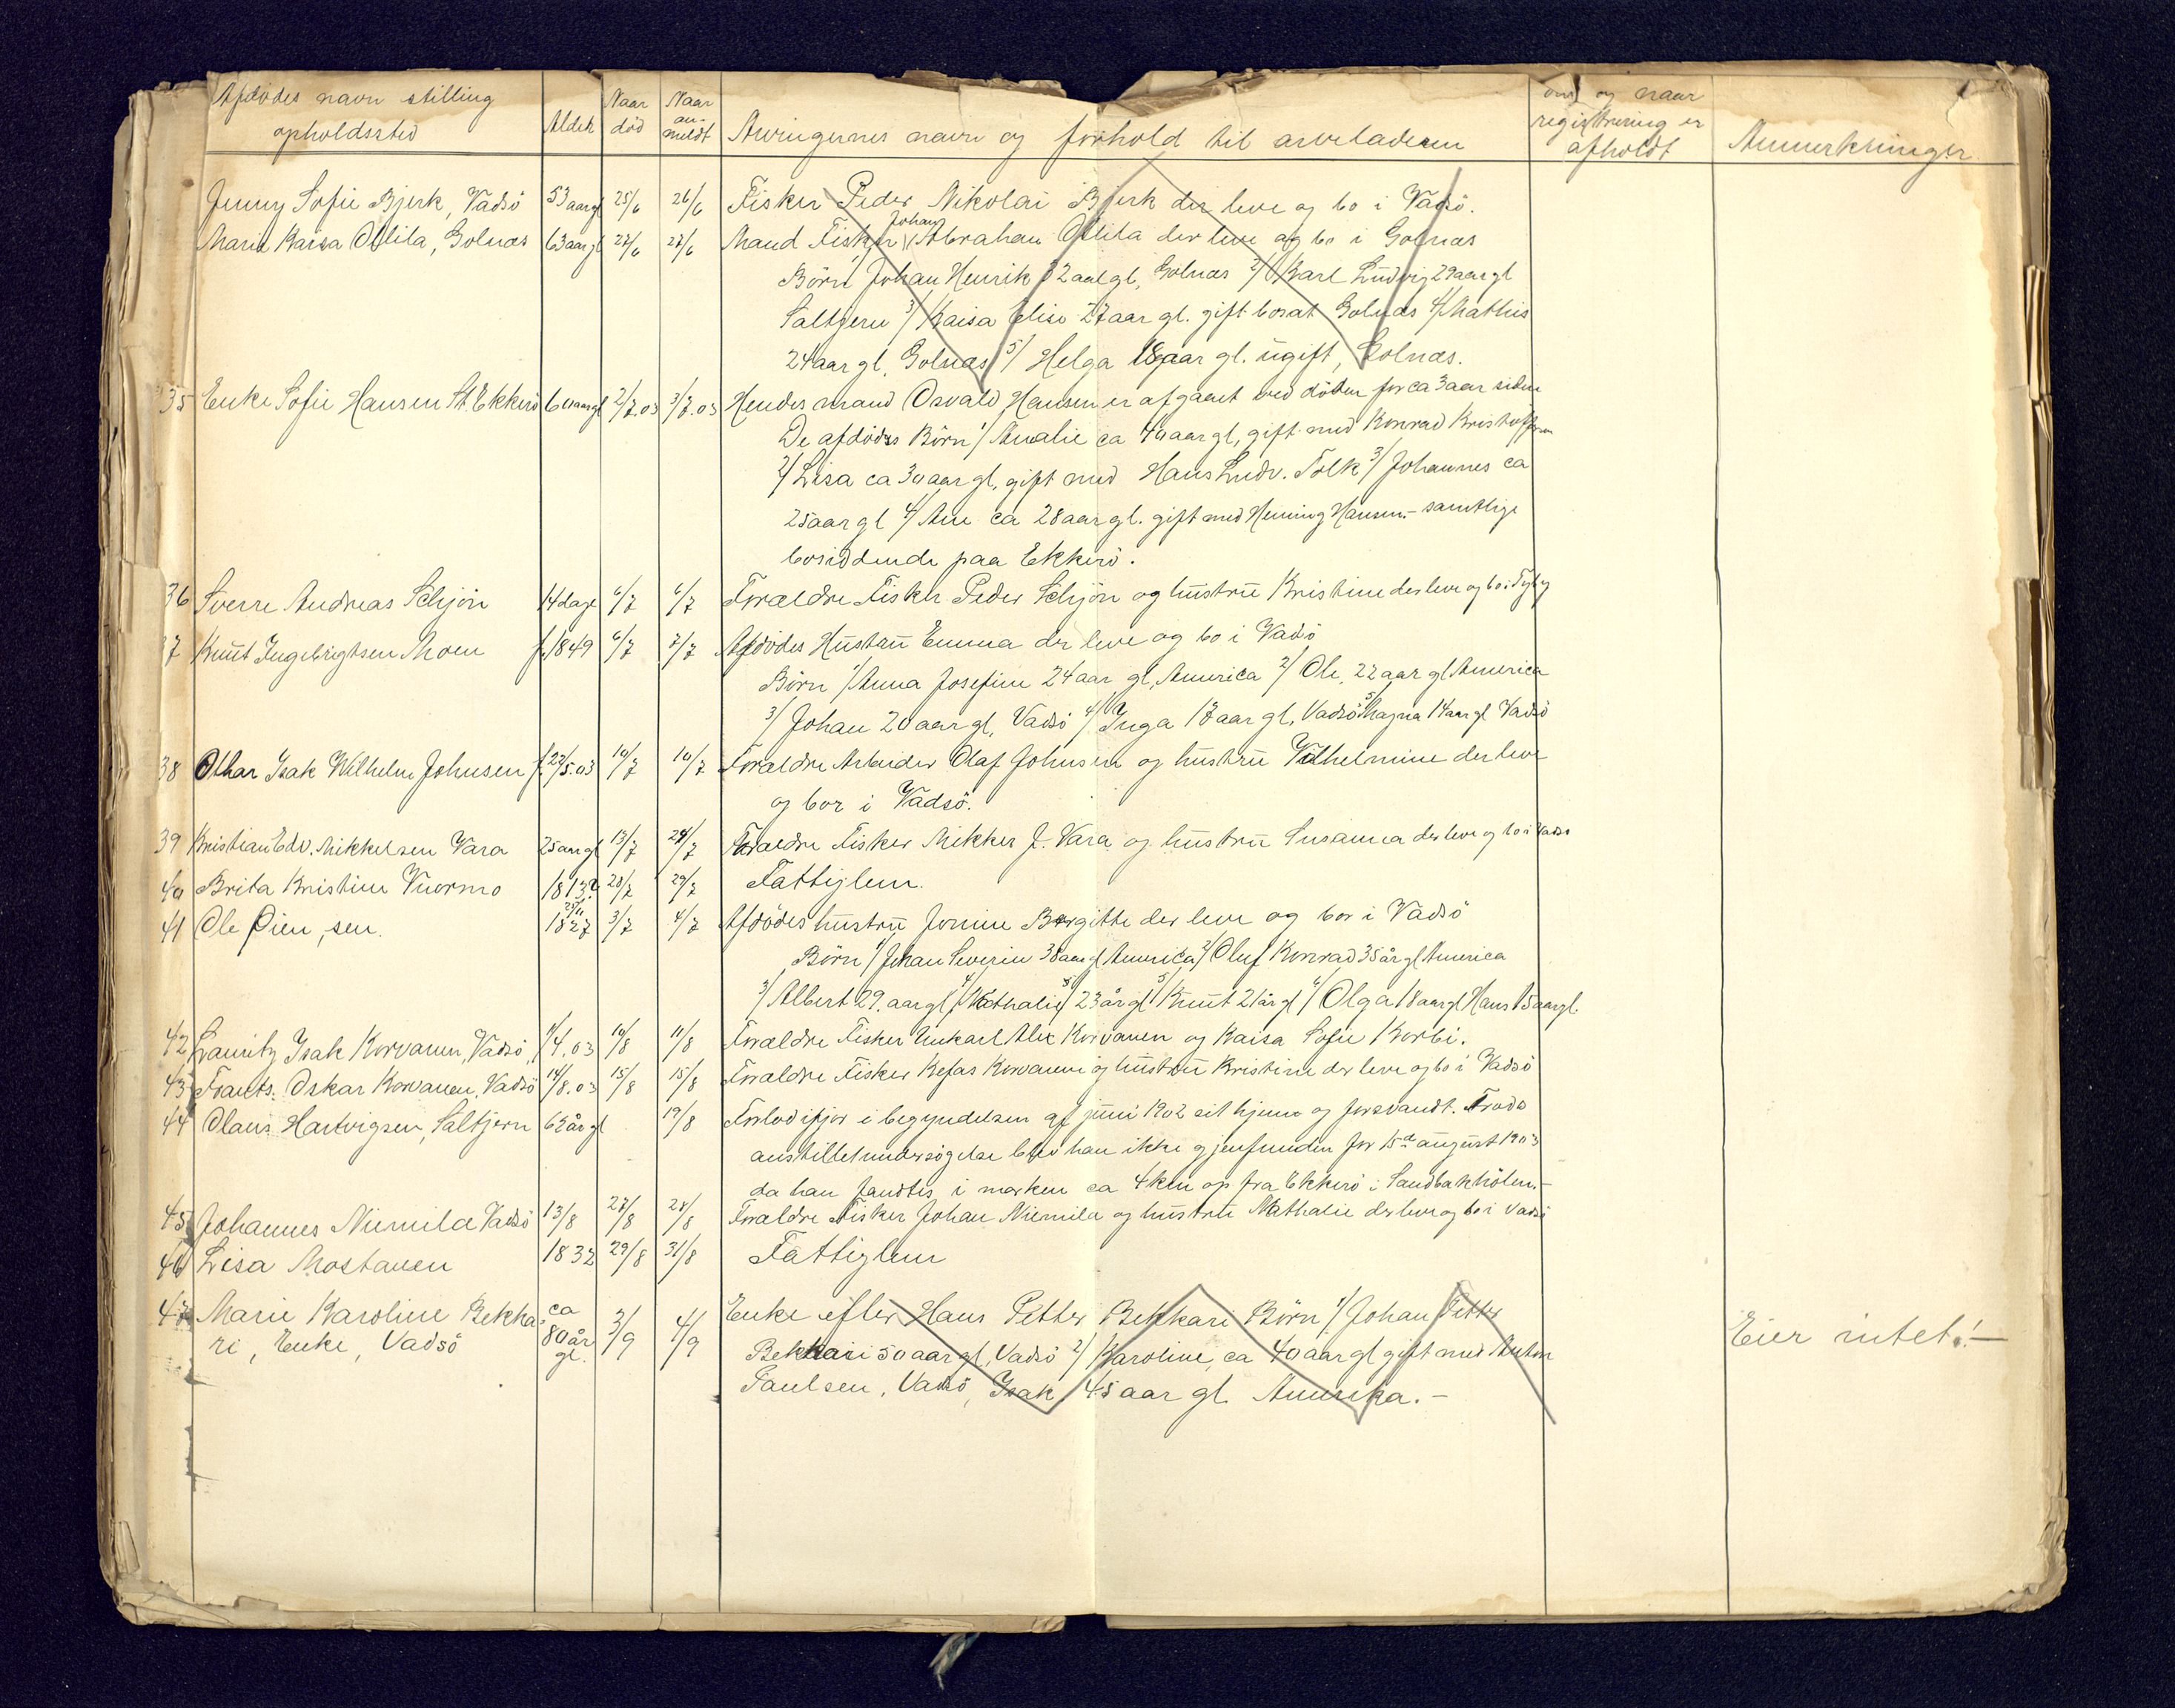 Afdødes navn stilling
opholdssted
Alder
Naar
død
Naar
an-
meldt
Arvingernes navn og forhold til arveladeren
om og naar
registrering er
afholdt
Anmerkninger.
Jenny Sofie Bjerk, Vadsö 53 aar gl 25/6 26/6 Fisker Peder Nikolai Bjerk der leve og bo i Vadsö.
Johan
Maria Kaisa Ollila, Golnæs 63 aar gl 27/6 27/6 Mand Fisker Abraham Ollila der leve og bo i Golnæs
Börn 1/ Johan Henrik 32 aar gl, Golnæs 2/ Karl Ludvig 29 aar gl
Saltjern 3/ Kaisa Elise 27 aar gl. gift bosat Golnæs 4/ Mathis
24 aar gl, Golnæs 5/ Helga 18 aar gl. ugift, Golnæs.
35 Enke Sofie Hansen St. Ekkerö 60 aar gl 2/7.03 3/7.03 Hendes mand Osvald Hansen er afgaaet ved döden for ca 3 aar siden
De afdödes Börn 1/ Amalie ca 40 aar gl, gift med Konrad Kristoffersen
2/ Lisa ca 30 aar gl, gift med Hans Ludv. Tolk 3/ Johannes ca
25 aar gl 4/ Ane ca 28 aar gl. gift med Henning Hansen. - samtlige
bosiddende paa Ekkerö.
36 Sverre Andreas Schjön 14 dage 6/7 6/7 Forældre Fisker Peder Schjön og hustru Kristine der leve og bo i
37 Knut Ingebrigtsen Moen f. 1849 6/7 7/7 Afdödes Hustru Emma der leve og bo i Vadsö
Börn 1/ Anna Josefine 24 aar gl, America 2/ Ole, 22 aar gl America
3/ Johan 20 aar gl, Vadsö 4/ Inga 17 aar gl, Vadsö 5/ Magna 14 aar gl Vadsö
38 Othar Isak Wilhelm Johnsen f. 22/5.03 10/7 10/7 Forældre Arbeider Olaf Johnsen og hustru Vilhelmine der leve
og bor i Vadsö.
39 Kristian Edv. Mikkelsen Vara 25 aar gl 13/7 24/7 Forældre Fisker Mikkel J. Vara og hustru Susanna der leve og bo i Vadsö
40 Brita Kristine Vuormo 1813? 28/7 29/7 Fattiglem.
41 Ole Öien, sen. 25/11 1827 3/7 4/7 Afdödes hustru Jonine Bergitte der leve og bor i Vadsö
Börn 1/ Johan Severin 38 aar gl America 2/ Oluf Konrad 35 år gl America
3/ Albert 29. aar gl 4/ Nathalie 23 år gl 5/ Knut 21 år gl 6/ Olga 18 aar gl Hans 15 aar gl.
42 Lauritz Isak Korvanen, Vadsö, 1/4.03 10/8 11/8 Forældre Fisker Mikael Alex Korvanen og Kaisa Sofie Korbi.
43 Frants. Oskar Korvanen, Vadsö 14/8.03 15/8 15/8 Forældre Fisker Kefas Korvanen og hustru Kristine der leve og bo i Vadsö
44 Olaus Hartvigsen, Saltjern 62 år gl 19/8 Forlod ifjor i begyndelsen af juni 1902 sit hjem og forsvandt. Trods
anstillet undersögelse blev han ikke gjenfunden för 15de august 1903
da han fandtes i marken ca 4 km op fra Ekkerö i Sandbakhölen. -
45 Johannes Niemila Vadsö 13/8 27/8 28/8 Forældre Fisker Johan Niemila og hustru Nathalie der leve og bo i Vadsö
46 Lisa Mostanen 1832 29/8 31/8 Fattiglem
47 Marie Karoline Bekka- ca 3/9 4/9 Enke efter Hans Petter Bekkari Börn 1/ Johan Petter
ri, Enke, Vadsö 80 år gl. Bekkari 50 aar gl, Vadsö 2/ Karoline, ca 40 aar gl gift med Anton Eier intet! -
Paulsen, Vadsö, Isak 45 aar gl. Amerika. -